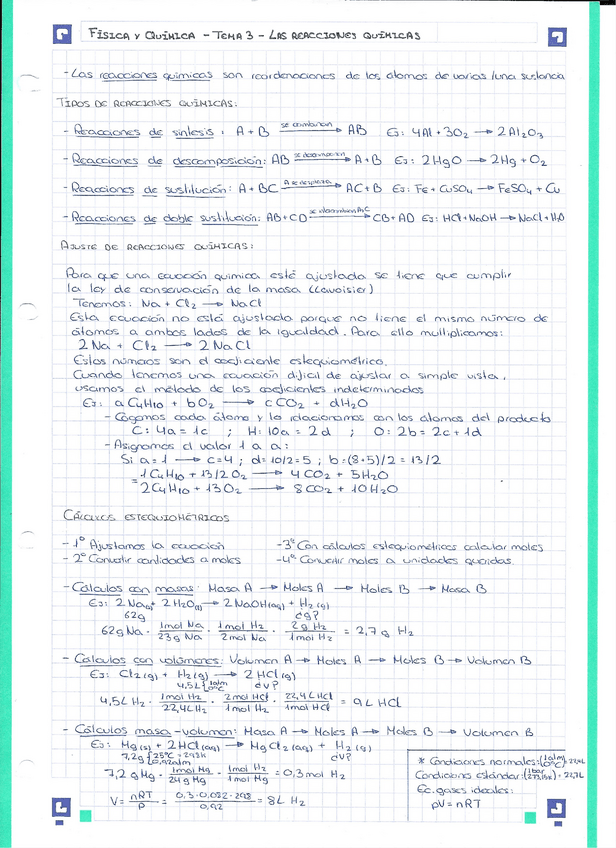 FÍSICA Y QUÍMICA - TEMA 3 - LAS REACCIONES QUÍMICAS
- Las reacciones químicas son reordenaciones de los átomos de varias/una sustancia
TIPOS DE REACCIONES QUÍMICAS:
- Reacciones de síntesis: A+B se combinan → AB Ej: 4Al + 3O₂ → 2Al₂O₃
- Reacciones de descomposición: AB se descomponen → A+B Ej: 2HgO → 2Hg + O₂
- Reacciones de sustitución: A+BC A se desplaza → AC+B Ej: Fe + CuSO₄ → FeSO₄ + Cu
- Reacciones de doble sustitución: AB+CD → CB+AD Ej: HCl+NaOH → NaCl+H₂O
AJUSTE DE REACCIONES QUÍMICAS:
Para que una ecuación química esté ajustada se tiene que cumplir
la ley de conservación de la masa (Lavoisier)
Tenemos: Na + Cl₂ → NaCl
Esta ecuación no está ajustada porque no tiene el mismo número de
átomos a ambos lados de la igualdad. Para ello multiplicamos:
2Na + Cl₂ → 2NaCl
Estos números son el coeficiente estequiométrico.
Cuando tenemos una ecuación difícil de ajustar a simple vista,
usamos el método de los coeficientes indeterminados
Ej: aC₄H₁₀ + bO₂ → cCO₂ + dH₂O
- Cogemos cada átomo y lo relacionamos con los átomos del producto
C: 4a = 1c ; H: 10a = 2d ; O: 2b = 2c + 1d
- Asignamos el valor 1 a a:
Si a = 1 → c=4 ; d=10/2=5 ; b=(8+5)/2 = 13/2
= 1C₄H₁₀ + 13/2 O₂ → 4CO₂ + 5H₂O
2C₄H₁₀ + 13O₂ → 8CO₂ + 10H₂O
CÁLCULOS ESTEQUIOMÉTRICOS
- 1º Ajustamos la ecuación - 3º Con cálculos estequiométricos calcular moles
- 2º Convertir cantidades a moles - 4º Convertir moles a unidades queridas.
- Cálculos con masas: Masa A → Moles A → Moles B → Masa B
Ej: 2Na(s) + 2H₂O(l) → 2NaOH(aq) + H₂(g)
62g ¿g?
62g Na · 1mol Na / 23g Na · 1mol H₂ / 2mol Na · 2g H₂ / 1mol H₂ = 2,7g H₂
- Cálculos con volúmenes: Volumen A → Moles A → Moles B → Volumen B
Ej: Cl₂(g) + H₂(g) → 2HCl(g)
4,5L {1atm 0ºC ¿V?
4,5L H₂ · 1mol H₂ / 22,4L H₂ · 2mol HCl / 1mol H₂ · 22,4L HCl / 1mol HCl = 9L HCl
- Cálculos masa-volumen: Masa A → Moles A → Moles B → Volumen B
Ej: Mg(s) + 2HCl(aq) → MgCl₂(aq) + H₂(g)
7,2g {25ºC=298K 0,92atm ¿V?
7,2g Mg · 1mol Mg / 24g Mg · 1mol H₂ / 1mol Mg = 0,3mol H₂
V = nRT / P = 0,3·0,082·298 / 0,92 = 8L H₂
* Condiciones normales: (1atm 0ºC) 22,4L
Condiciones estándar: (1bar 273,15K) 22,7L
Ec. gases ideales:
pV = nRT